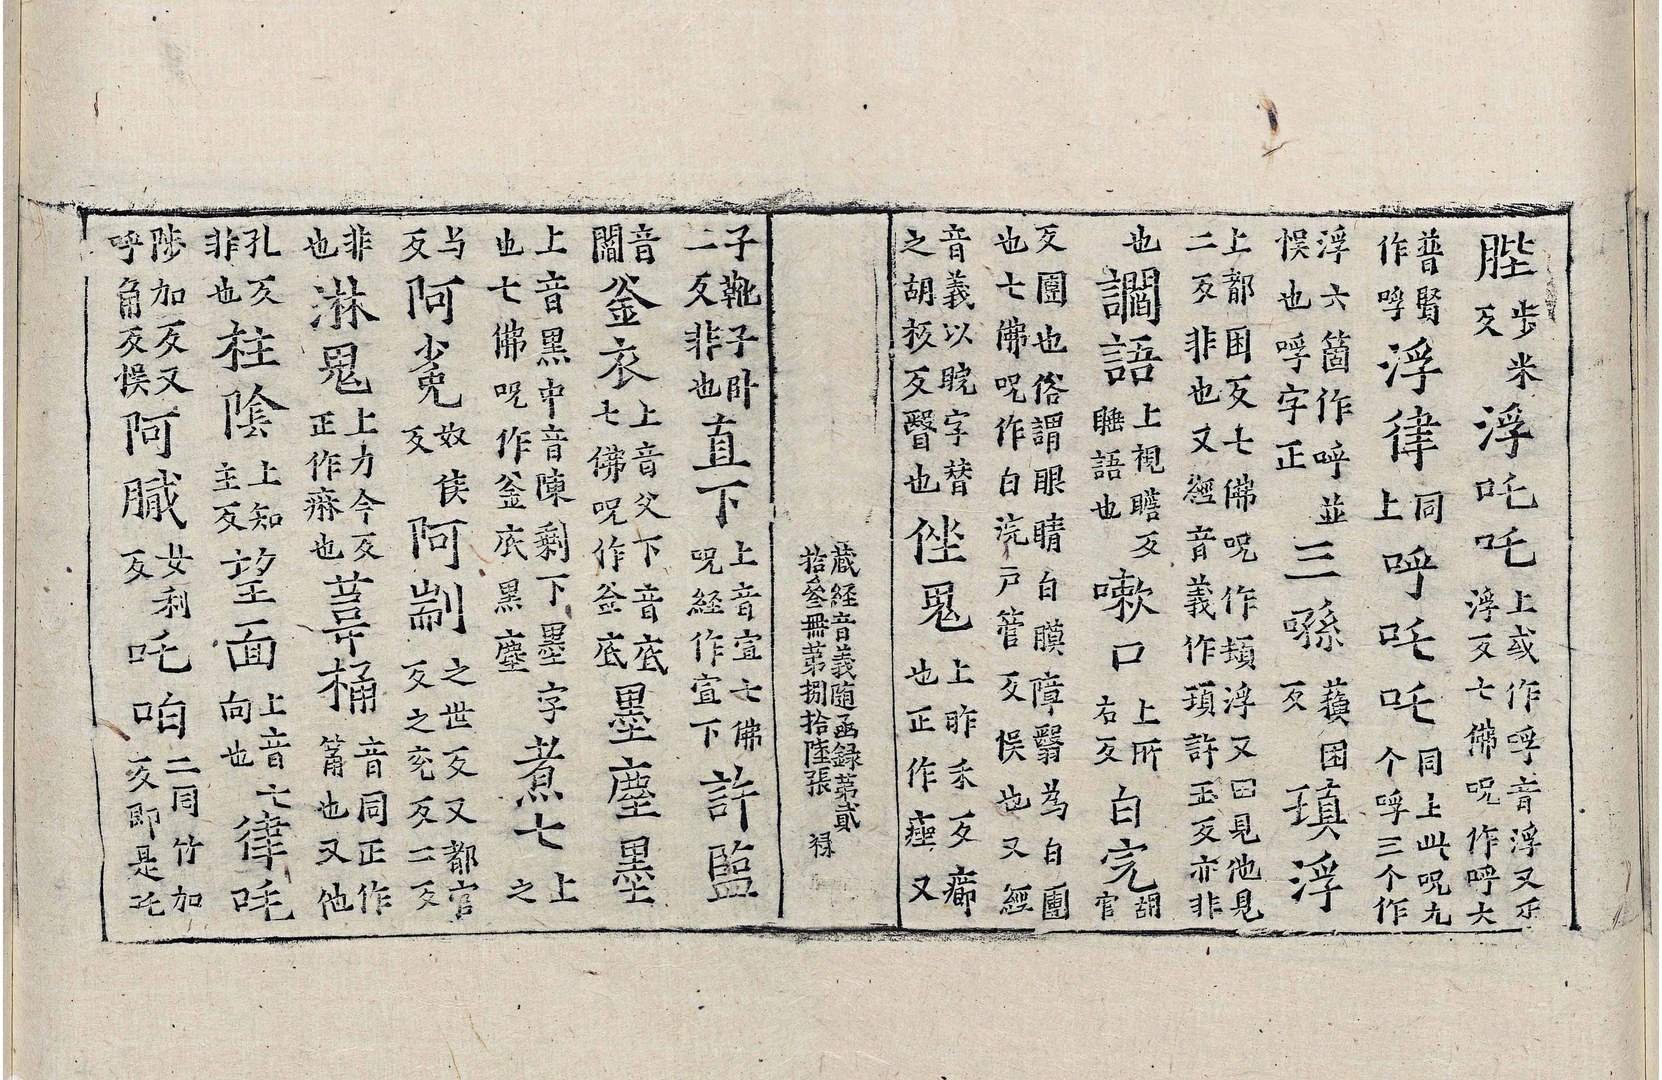 陛步米反浮吒吒上或作呼音浮又乎浮反七佛呪作呼大
普賢作呼浮律同上呼吒吒同上此呪九个呼三个作
浮六箇作呼並悮也呼字正三㖮蘓困反瑱浮
上都困反七佛呪作頬浮又曰見他見二反非也又經音義作頊許玉反亦非
也讇語上視瞻反睡語也嗽口上所右反白完胡官
反團也俗謂眼睛白膜障翳為白團也七佛呪作白浣戸管反悮也又經
音義以睆字替之胡栝反瞖也㘸鬼上昨禾反癤也正作痤又
蔵経音義随函録第貳拾叄冊第捌拾陸張 禄
子靴子卧二反非也直下上音宣七佛呪経作宣下許監
音閻釜衣上音父下音底七佛呪作釜底墨塵墨
上音黒中音陳剩下墨字也七佛呪作釜底黒塵煮七上之
与反阿㝹奴侯反阿㓮之世反又都官反之兖反二反
非也淋鬼上力今反正作痳也茸桶音同正作筩也又他
孔反非也柱陰上知主反望面上音向也七律吒
陟加反又呼角反悮阿膩女利反吒咱二同竹加反即是吒